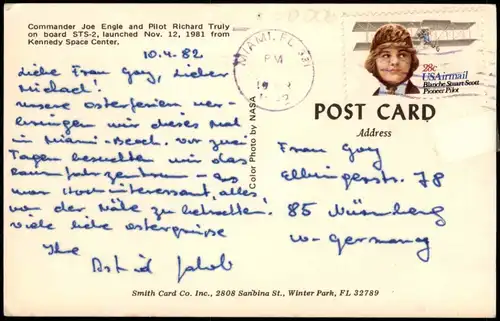 Commander Joe Engle and Pilot Richard Truly
on board STS-2, launched Nov. 12, 1981 from
Kennedy Space Center.
10.4.82
Liebe Frau Goy, Lieber
Michael!
unsere osterferien ver-
bringen wir dieses Mal
in Miami-Beach. Vor zwei
Tagen besuchten wir das
raumfahrzentrum - es
war Hochinteressant, alles
von der Nähe zu betrachten.
viele liebe ostergrüsse
Ihre
Astrid Jakob
Color Photo by NASA
MIAMI, FL 331
PM
28c
USAirmail
Blanche Stuart Scott
Pioneer Pilot
POST CARD
Address
Frau Goy
Elbingerstr. 78
85 Nürnberg
W-Germany
Smith Card Co. Inc., 2808 Sanbina St., Winter Park, FL 32789